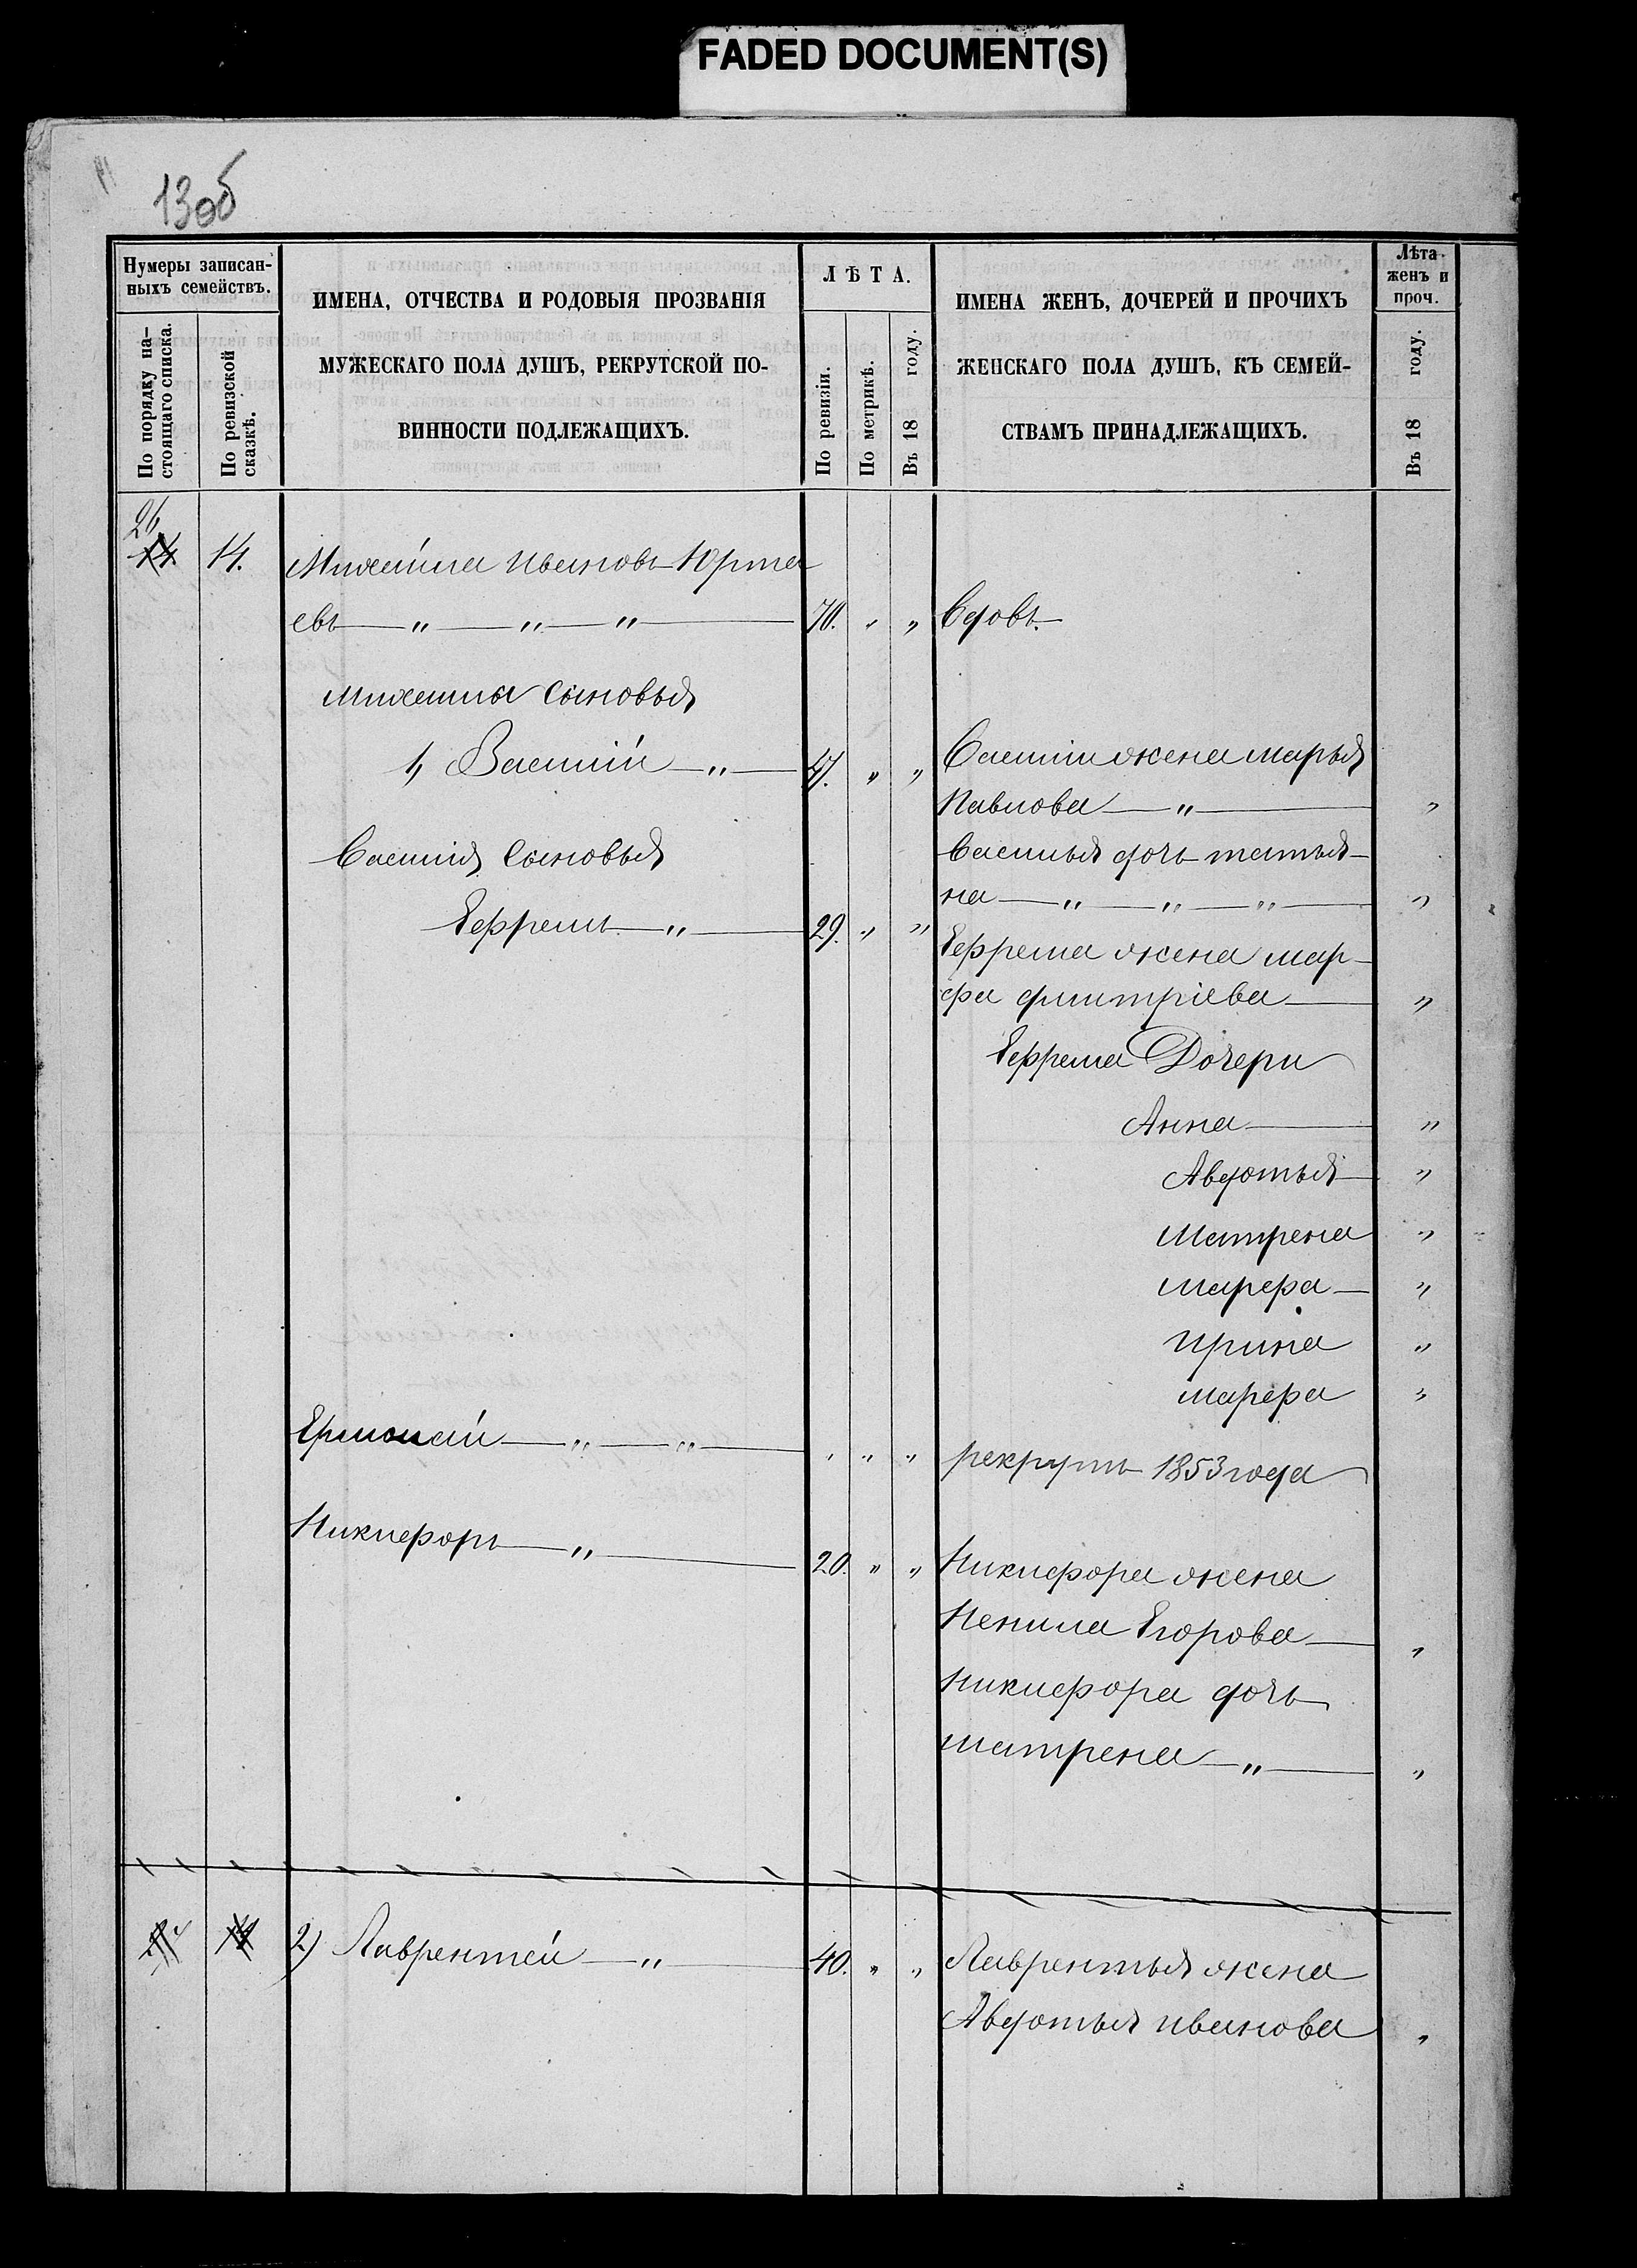 FADED DOCUMENT(S)
13об
Нумеры записан-
ныхъ семействъ.
По порядку на-
стоящаго списка.
По ревизской
сказкѣ.
ИМЕНА, ОТЧЕСТВА И РОДОВЫЯ ПРОЗВАНІЯ
МУЖЕСКАГО ПОЛА ДУШЪ, РЕКРУТСКОЙ ПО-
ВИННОСТИ ПОДЛЕЖАЩИХЪ.
ЛѢТА.
По ревизіи.
По метрикѣ.
Въ 18 году.
ИМЕНА ЖЕНЪ, ДОЧЕРЕЙ И ПРОЧИХЪ
ЖЕНСКАГО ПОЛА ДУШЪ, КЪ СЕМЕЙ-
СТВАМЪ ПРИНАДЛЕЖАЩИХЪ.
Лѣта
женъ и
проч.
Въ 18 году.
14. Михайла Ивановъ Юрта
евъ — „ — „ — „ — 70. „ „ Вдовъ
Михаилы сыновья
1, Василій — „ — 47. „ „ Василія жена марья
Павлова — „ — „
Василія сыновья
Василья дочь татья-
на — „ — „ — „ — „
Ефремъ — „ — 29. „ „
Ефрема жена мар-
фа дмитріева — „
Ефрема Дочери
Анна — „
Авдотья — „
Матрена „
марфа — „
ирина „
марфа „
Ермолай — „ — „ — „ „ „ рекрутъ 1853 года
Никифоръ — „ — 20. „ „ Никифора жена
Ненила Егорова — „
Никифора дочь
матрена — „ — „
2) Лаврентей — „ — 40. „ „ Лаврентья жена
Авдотья иванова „